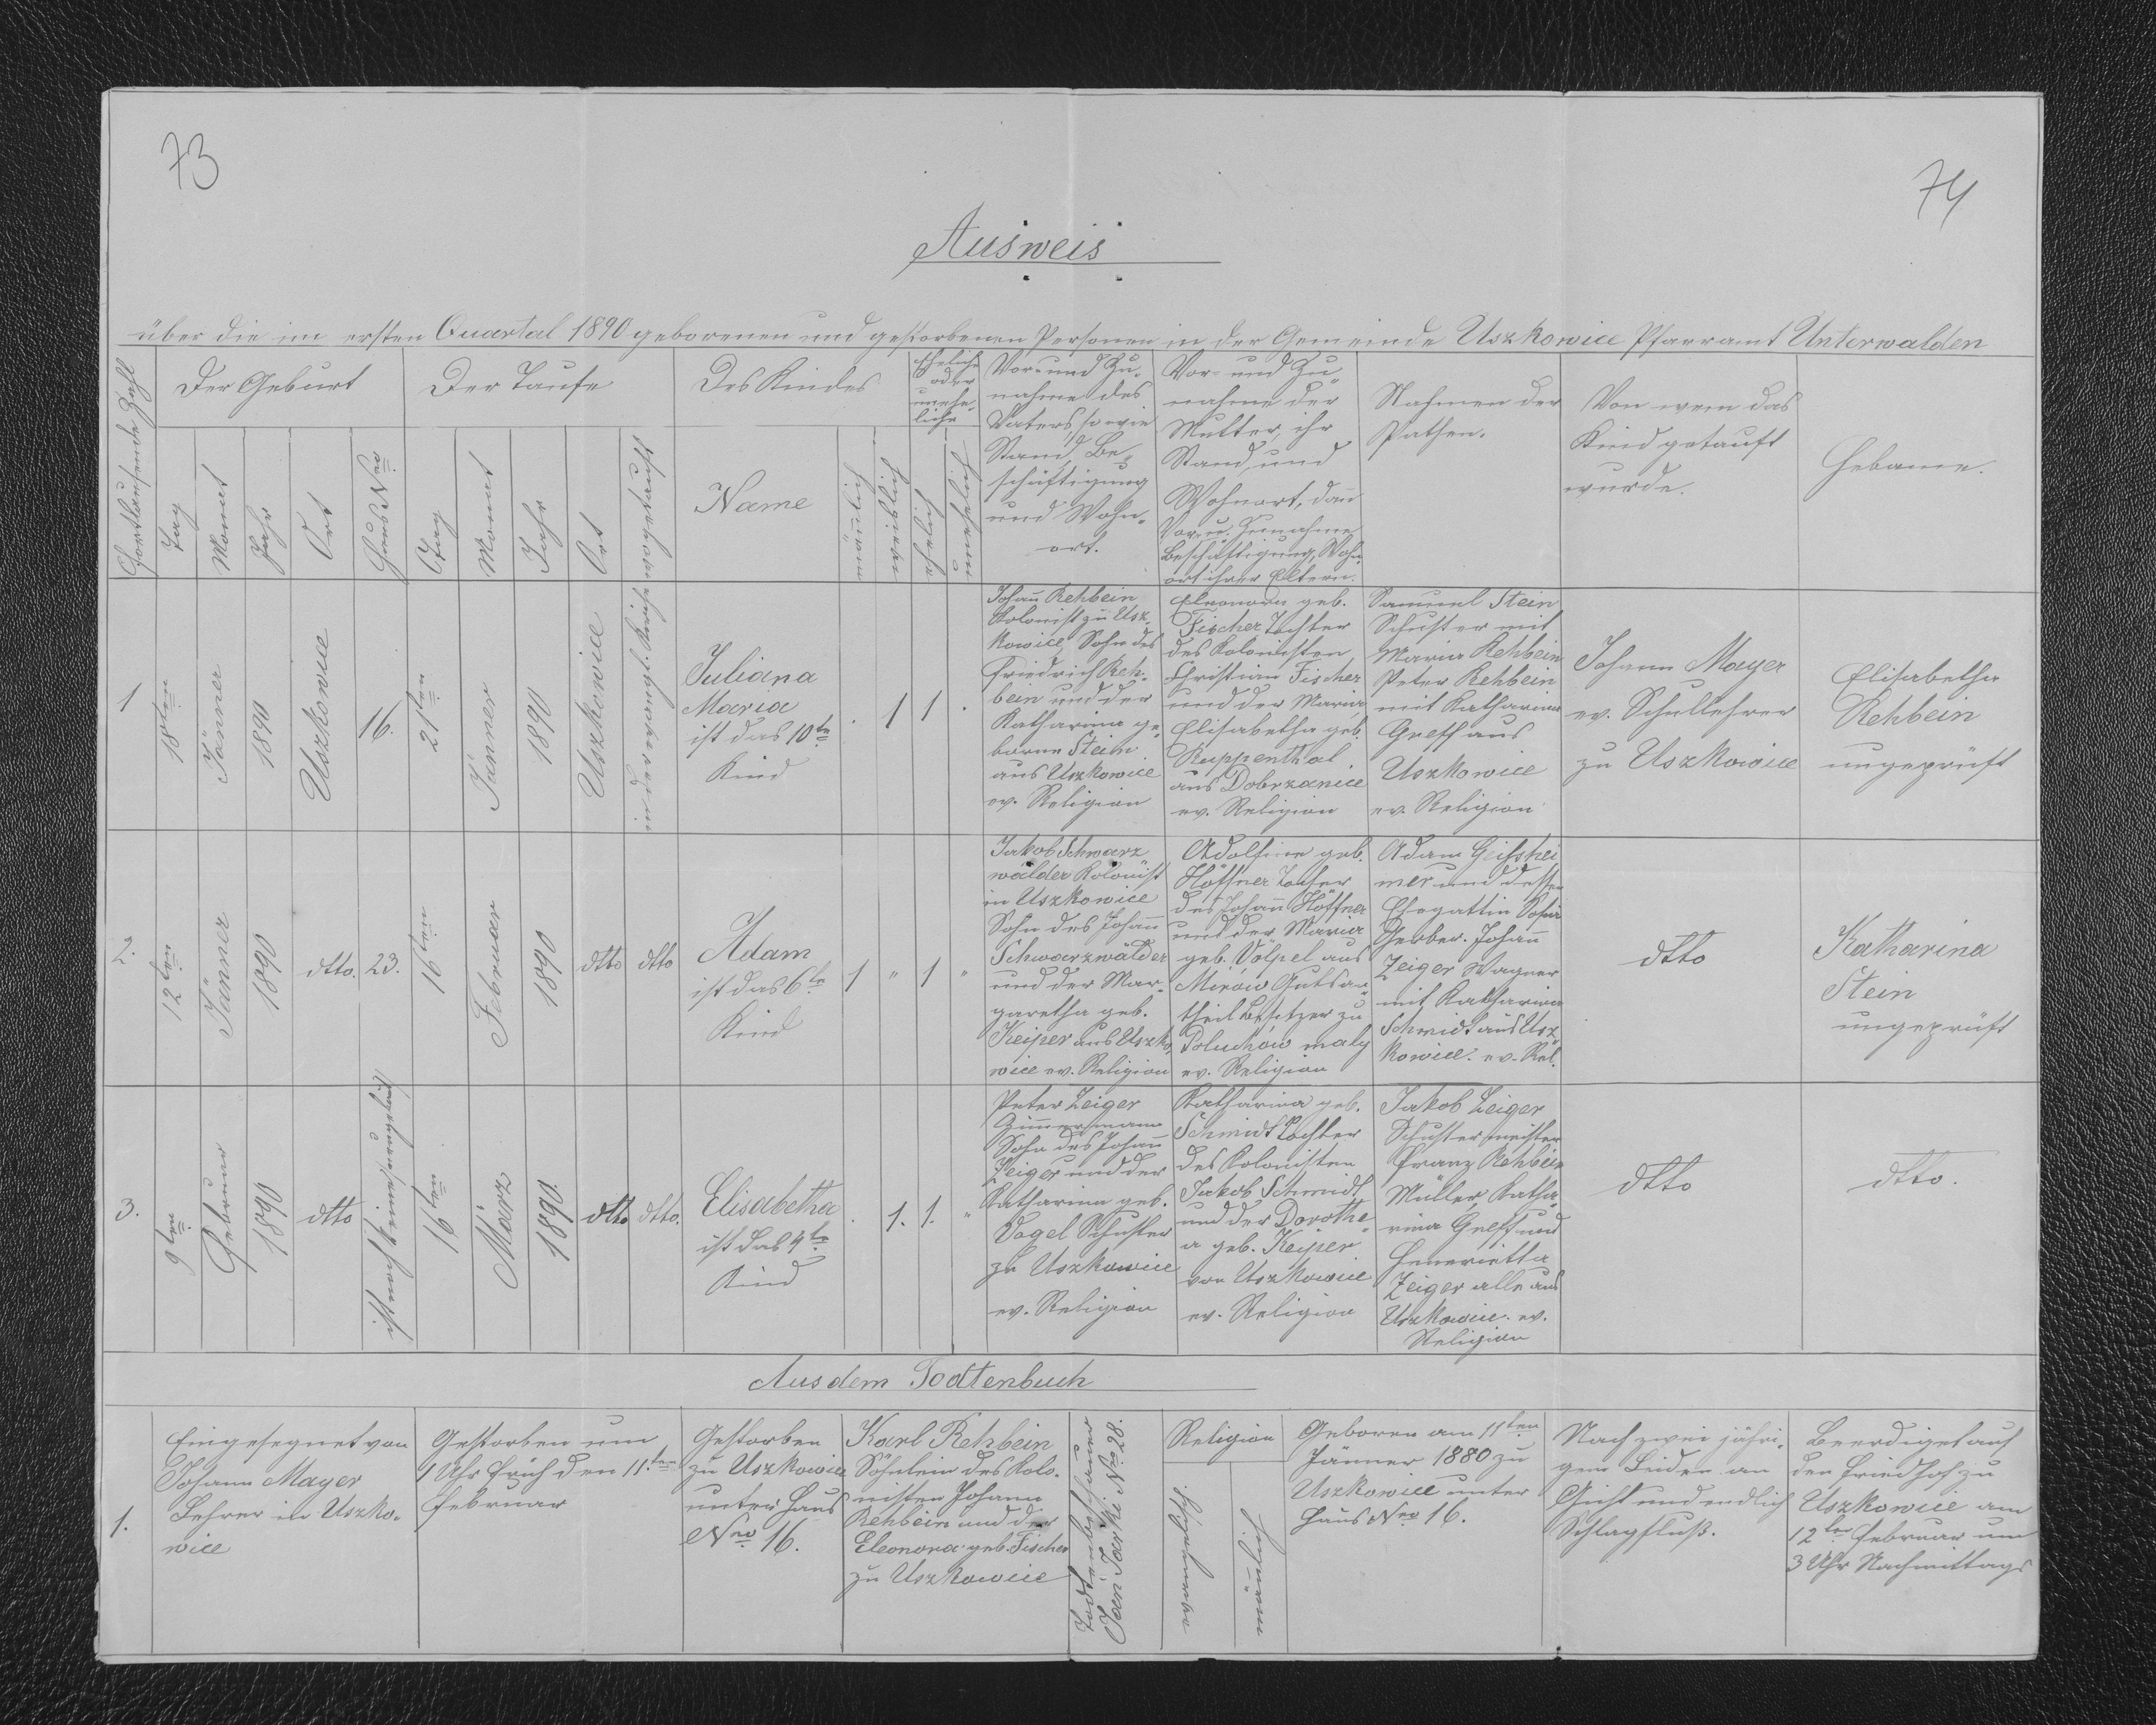 73
74
Ausweis
über die im ersten Quartal 1890 geborenen und gestorbenen Personen in der Gemeinde Uszkowice Pfarramt Unterwalden
Fortlaufende Zahl
Der Geburt
Der Taufe
Des Kindes
Eheliche
oder
unehe-
liche
Vor- und Zu-
nahme des
Vaters, sowie
Stand, Be-
schäftigung
und Wohn-
ort.
Vor- und Zu-
nahme der
Mutter, ihr
Stand, und
Wohnort, dann
Vor- u. Zunahme
Beschäftigung, Wohn-
ort ihrer Eltern.
Nahmen der
Pathen.
Von wem das
Kind getauft
wurde.
Hebame.
Tag
Monat
Jahr
Ort
Haus Nro
Tag
Monat
Jahr
Ort
wo getauft
Name
mänlich
weiblich
ehelich
unehelich
1
18ten
Jänner
1890
Uszkowice
16.
21ten
Jänner
1890
Uszkowice
in der evangl. Kirche
Juliana
Maria
ist das 10te
Kind
.
1
1
.
Johann Rehbein
Kolonist zu Usz-
kowice, Sohn des
Friedrich Reh-
bein und der
Katharina ge-
borne Stein
aus Uszkowice
ev. Religion
Eleonora geb.
Fischer Tochter
des Kolonisten
Christian Fischer
und der Maria
Elisabetha geb.
Ruppenthal
aus Dobrzanice
ev. Religion
Samuel Stein
Schuster mit
Maria Rehbein
Peter Rehbein
mit Katharina
Greff aus
Uszkowice
ev. Religion
Johann Mayer
ev. Schullehrer
zu Uszkowice
Elisabetha
Rehbein
ungeprüft
2.
12ten
Jänner
1890
dtto.
23.
16ten
Februar
1890
dtto
dtto
Adam
ist das 6te
Kind
1
"
1
"
Jakob Schwarz
wälder Kolonist
in Uszkowice
Sohn des Johann
Schwarzwälder
und der Mar-
garetha geb.
Keiper aus Uszko-
wice ev. Religion
Adolfine geb.
Höffner Tochter
des Johann Höffner
und der Maria
geb. Völpel aus
Mirów Gutsan-
theil Besitzer zu
Poluchów maly
ev. Religion
Adam Geishei
mer und dessen
Ehegattin Sofia
Gerber. Johann
Zeiger Wagner
mit Katharina
Schmidt aus Usz-
kowice. ev. Rel.
dtto
Katharina
Stein
ungeprüft
3.
9ten
Februar
1890
dtto
ist noch keine
16ten
März
1890.
dtto.
dtto.
Elisabetha
ist das 4te
Kind
.
1.
1.
"
Peter Zeiger
Zimmermann
Sohn des Johann
Zeiger und der
Katharina geb.
Vogel Schuster
zu Uszkowice
ev. Religion
Katharina geb.
Schmidt Tochter
des Kolonisten
Jakob Schmidt
und der Dorothe-
a geb. Keiper
von Uszkowice
ev. Religion
Jakob Zeiger
Schustermeister
Franz Rehbein
Müller, Katha-
rina Greff und
Henerietta
Zeiger alle aus
Uszkowice. ev.
Religion
dtto
dtto.
Aus dem Todtenbuch
1.
Eingesegnet von
Johann Mayer
Lehrer in Uszko-
wice
Gestorben um
1 Uhr früh den 11.ten
Februar
Gestorben
zu Uszkowice
unter Haus
Nro 16.
Karl Rehbein
Söhnlein des Kolo-
nisten Johann
Rehbein und der
Eleonora geb. Fischer
zu Uszkowice
Todtenbeschauer
Jan Jarki No 28.
Religion
evangelisch.
mänlich
Geboren am 11ten
Jänner 1880 zu
Uszkowice unter
Haus Nro 16.
Nach zwei jähri-
gen Leiden an
Gicht und endlich
Schlagfluß.
Beerdiget auf
den Friedhof zu
Uszkowice am
12ten Februar um
3 Uhr Nachmittags